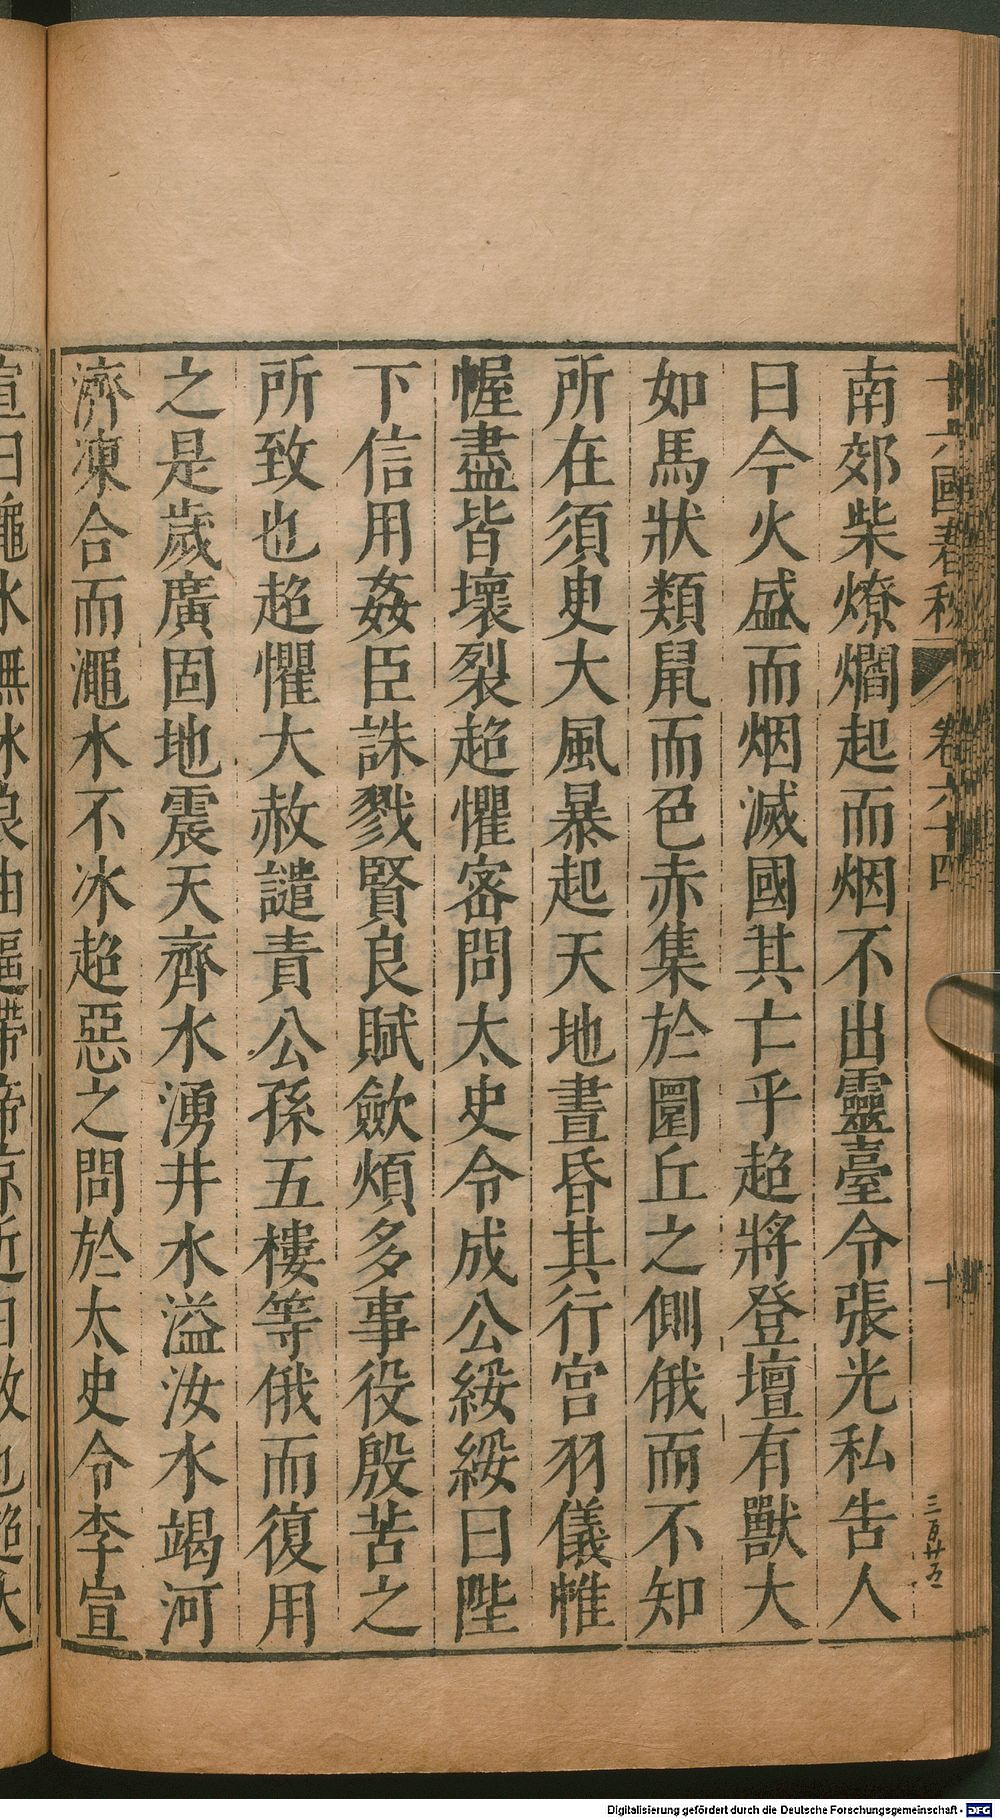 十六國春秋 卷六十四 十 三百廿五
南郊柴燎爓起而烟不出靈臺令張光私告人
曰今火盛而烟滅國其亡乎超將登壇有獸大
如馬狀類鼠而色赤集於圜丘之側俄而不知
所在須臾大風暴起天地晝昏其行宫羽儀帷
幄盡皆壞裂超懼密問太史令成公綏綏曰陛
下信用姦臣誅戮賢良賦歛煩多事役殷苦之
所致也超懼大赦譴責公孫五樓等俄而復用
之是歲廣固地震天齊水湧井水溢汝水竭河
濟凍合而澠水不冰超惡之問於太史令李宣
宣曰澠水無冰良由逼帶帝京近日故也超大
Digitalisierung gefördert durch die Deutsche Forschungsgemeinschaft - DFG